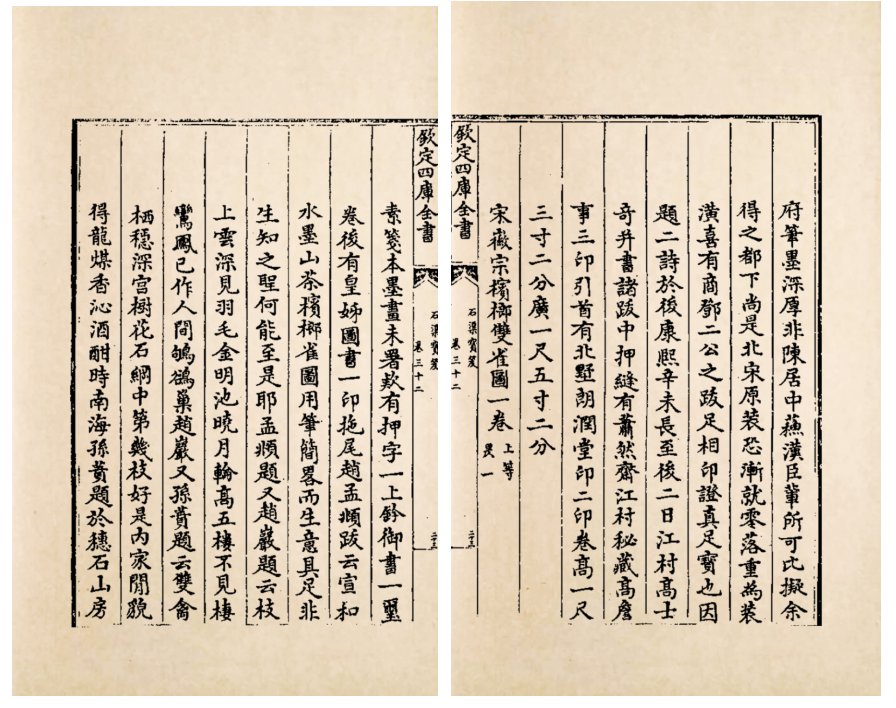 府筆墨深厚非陳居中蘓漢臣輩所可比擬余
得之都下尚是北宋原装恐漸就零落重為装
潢喜有商鄧二公之跋足相印證真足寳也因
題二詩於後康熙辛未長至後二日江村髙士
奇并書諸跋中押縫有蕭然齋江村秘藏髙詹
事三印引首有北墅朗潤堂印二印卷髙一尺
三寸二分廣一尺五寸二分
宋徽宗檳榔雙雀圖一卷 上等 一
欽定四庫全書
石渠寳笈
卷三十二
欽定四庫全書
石渠寳笈
卷三十二
素箋本墨畫未署欵有押字一上鈐御書一璽
卷後有皇姊圖書一印拖尾趙孟頫跋云宣和
水墨山茶檳榔雀圖用筆簡畧而生意具足非
生知之聖何能至是耶孟頫題又趙巖題云枝
上雲深見羽毛金明池曉月輪髙五棲不見棲
鸞鳳已作人間鴝鵒巢趙巖又孫蕡題云雙禽
栖穩深宫樹花石綱中第幾枝好是内家閒貌
得龍煤香沁酒酣時南海孫蕡題於穗石山房